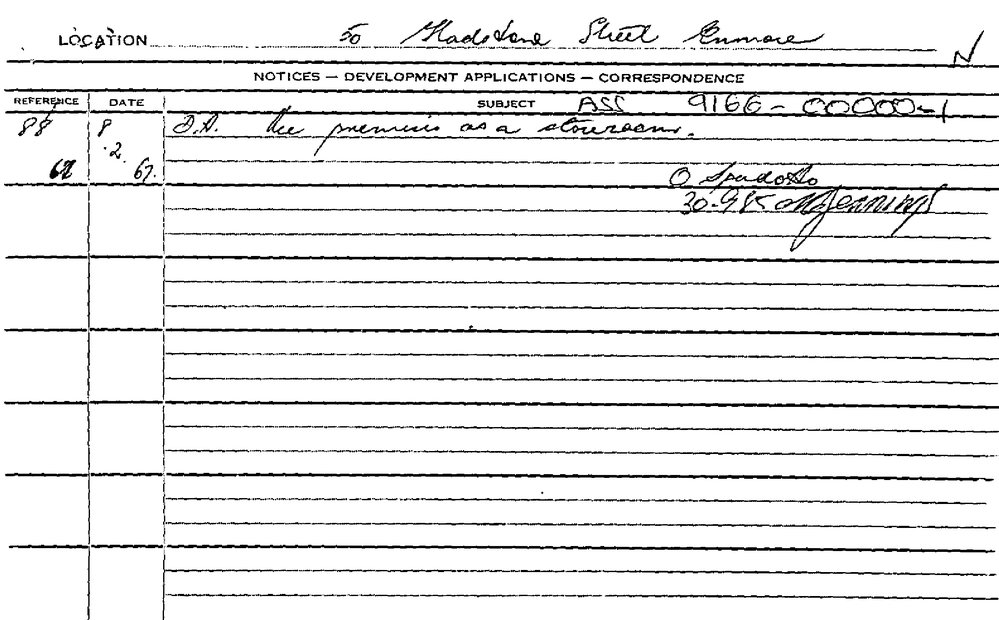 LOCATION 50 Gladstone Street Enmore
NOTICES — DEVELOPMENT APPLICATIONS — CORRESPONDENCE
REFERENCE DATE SUBJECT ASS 9166-00000-1
88 8 D.A. Use premises as a storeroom.
.2.
67.
O Spadotto
30-9-85 Jennings